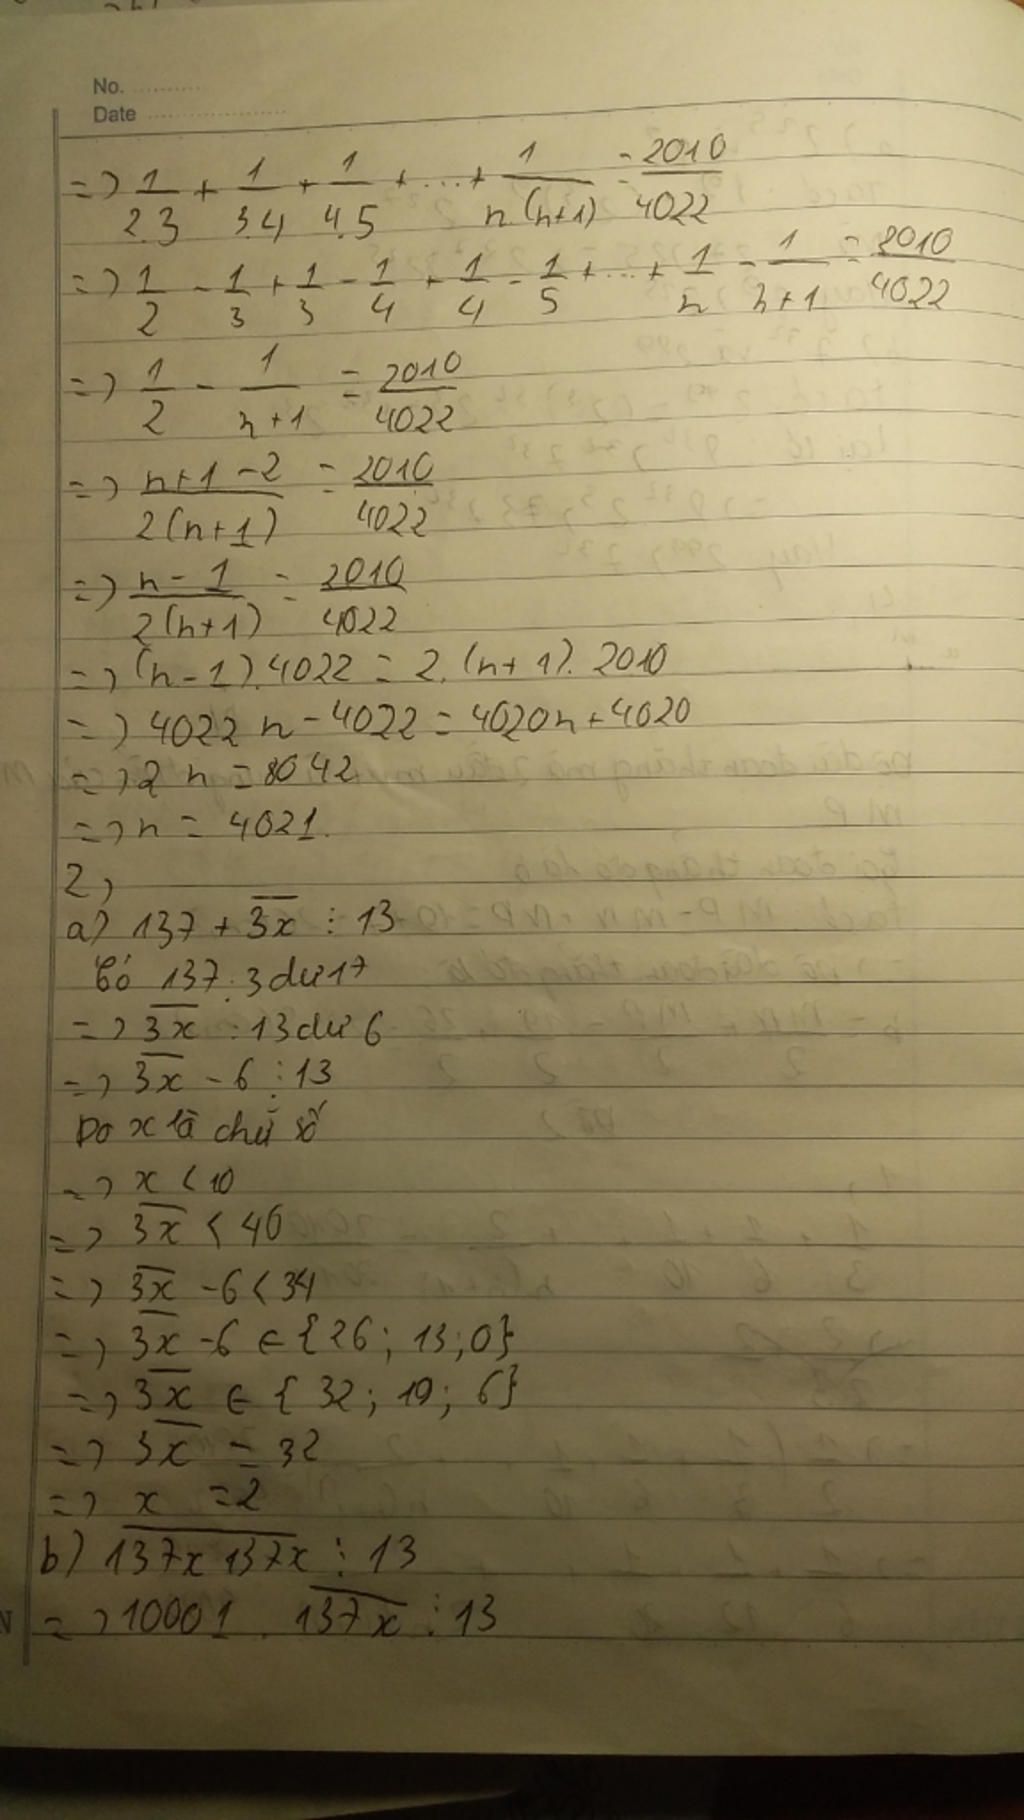 No.
Date
=> 1/2.3 + 1/3.4 + 1/4.5 + ... + 1/n(n+1) = 2010/4022
=> 1/2 - 1/3 + 1/3 - 1/4 + 1/4 - 1/5 + ... + 1/n - 1/n+1 = 2010/4022
=> 1/2 - 1/n+1 = 2010/4022
=> n+1-2/2(n+1) = 2010/4022
=> n-1/2(n+1) = 2010/4022
=> (n-1).4022 = 2.(n+1).2010
=> 4022n - 4022 = 4020n + 4020
=> 2n = 8042
=> n = 4021.
2,
a) 137 + 3x̅ ⋮ 13
Có 137 : 3 dư 17
=> 3x̅ : 13 dư 6
=> 3x̅ - 6 ⋮ 13
Do x là chữ số
=> x < 10
=> 3x̅ < 40
=> 3x̅ - 6 < 34
=> 3x̅ - 6 ∈ {26; 13; 0}
=> 3x̅ ∈ {32; 19; 6}
=> 3x̅ = 32
=> x = 2
b) 137x137x ⋮ 13
=> 10001 . 137x ⋮ 13